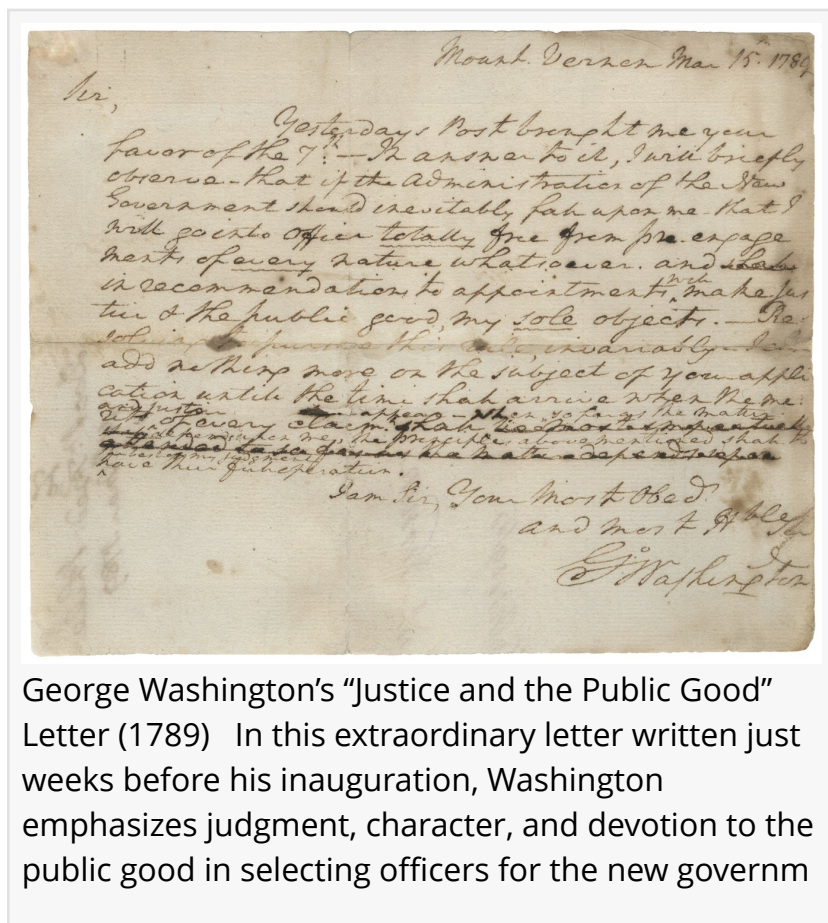 Mount Vernon Mar 15th 1789
Sir,
Yesterdays Post brought me your
favor of the 7th. — In answer to it, I will briefly
observe - that if the Administration of the New
Government should inevitably fall upon me - that I
will go into office totally free from pre-engage
ments of every nature whatsoever. and
in recommendations to appointments will make Jus
tice & the public good, my sole objects. — Re-
solving to pursue this rule, invariably I
add nothing more on the subject of your appli
cation until the time shall arrive when the me-
rits and justice of every claim shall appear - when so far as the matter
depends upon me, the principles above mentioned shall
have their full operation.
I am Sir, Your Most Obed
and most Hble Sr
Go Washington
George Washington's “Justice and the Public Good”
Letter (1789) In this extraordinary letter written just
weeks before his inauguration, Washington
emphasizes judgment, character, and devotion to the
public good in selecting officers for the new governm